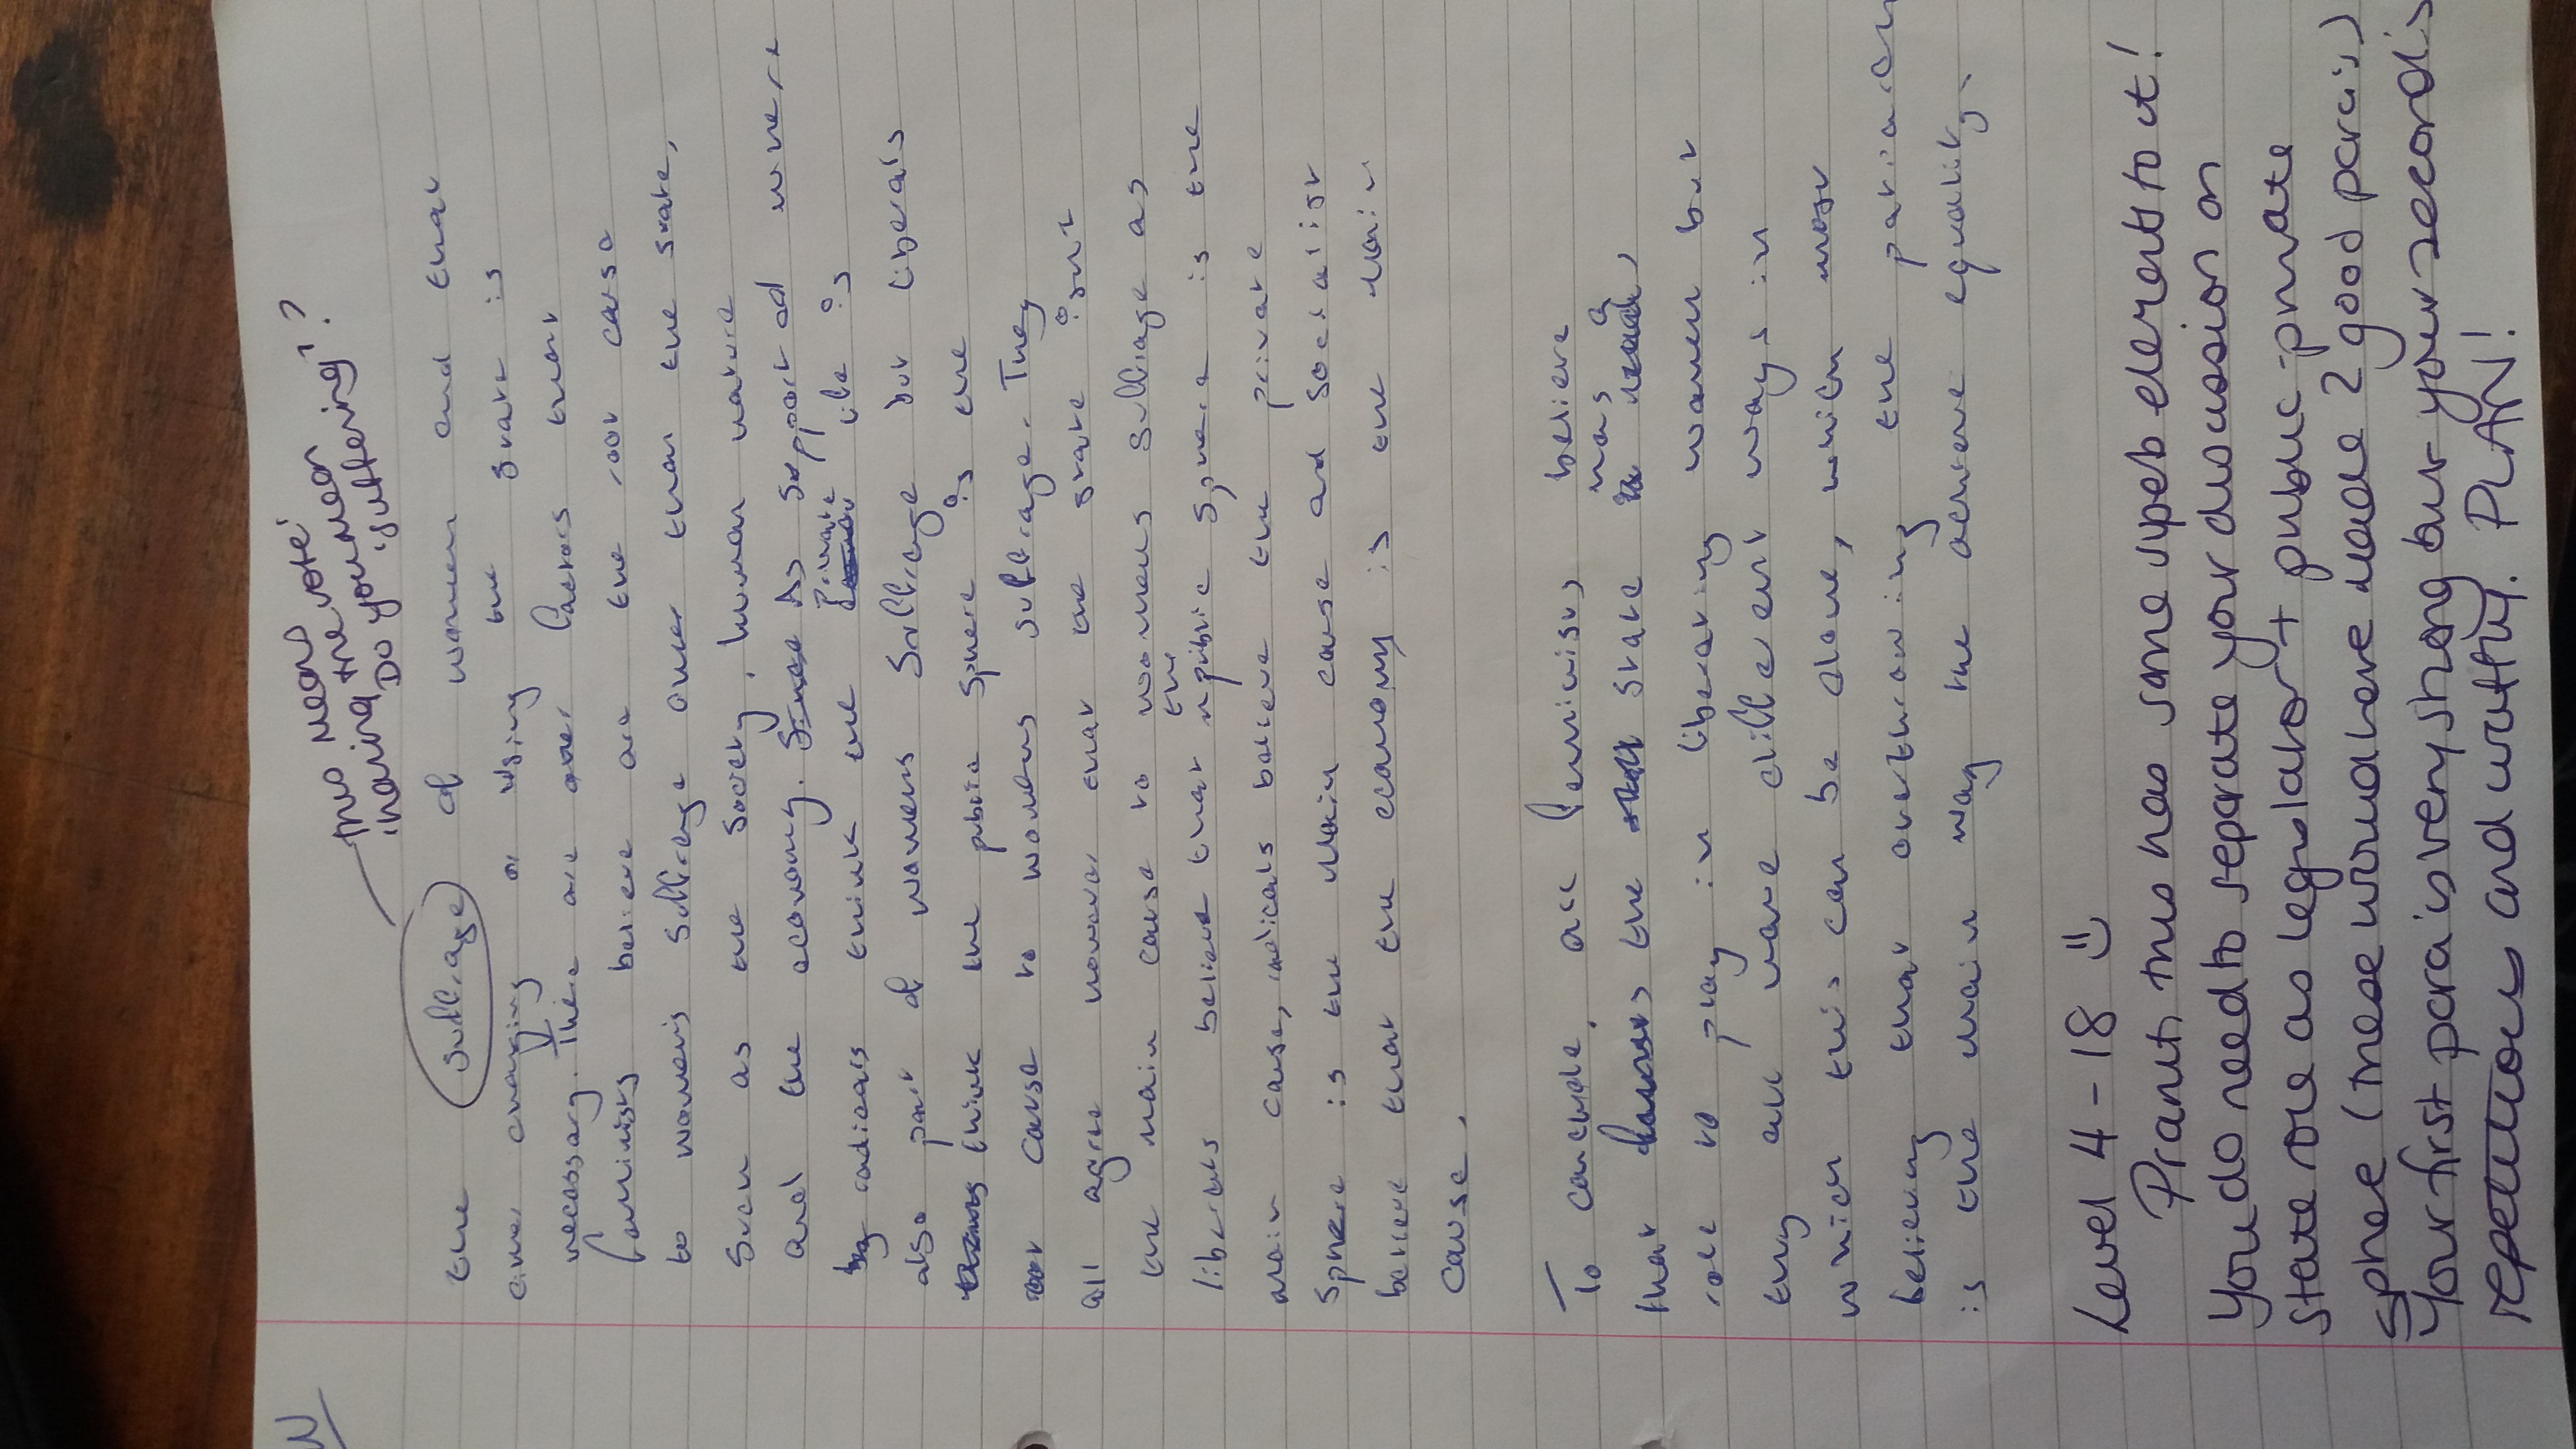 This means
having 'the vote'.
Do you mean
'suffering'?
the suffrage of women and that
either changing or using the state is
necessary. There are other factors that
feminists believe are the root cause
to women's suffrage other than the state,
such as the society, human nature
and the economy. As supported where
radicals think the private life is
also part of womens suffrage but liberals
think the public sphere is the
cause to womens suffrage. They
all agree however that the state isnt
the main cause to womens suffrage as
liberals believe that the public sphere is the
main cause, radicals believe the private
sphere is the main cause and socialist
believe that the economy is the main
cause.
To conclude, all feminists believe
that the state has a
role to play in liberating women but
they all have different ways in
which this can be done, with most
believing that overthrowing the patriarchy
is the main way to achieve equality.
Level 4 - 18
this has some superb elements to it!
You do need to separate your discussion on
state role as legislator + public-private
sphere (these would have made 2 good para's)
Your first para is very strong but your second is
repetitious and wafty. PLAN!